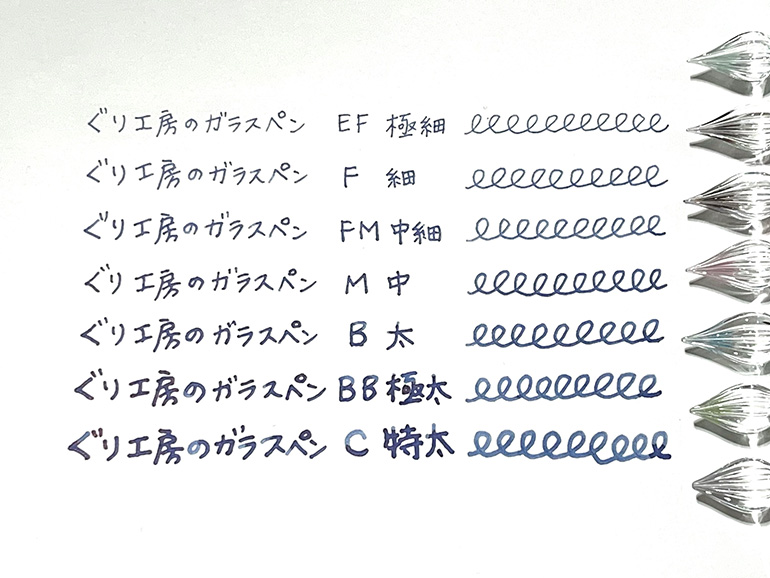 ぐり工房のガラスペン EF 極細
ぐり工房のガラスペン F 細
ぐり工房のガラスペン FM 中細
ぐり工房のガラスペン M 中
ぐり工房のガラスペン B 太
ぐり工房のガラスペン BB 極太
ぐり工房のガラスペン C 特太